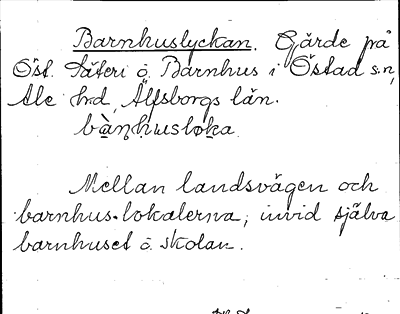 Barnhuslyckan. Gärde på
Öst. Säteri o. Barnhus i Östad s:n,
Ale hrd, Älfsborgs län.
Mellan landsvägen och
barnhus-lokalerna, invid själva
barnhuset o. skolan.